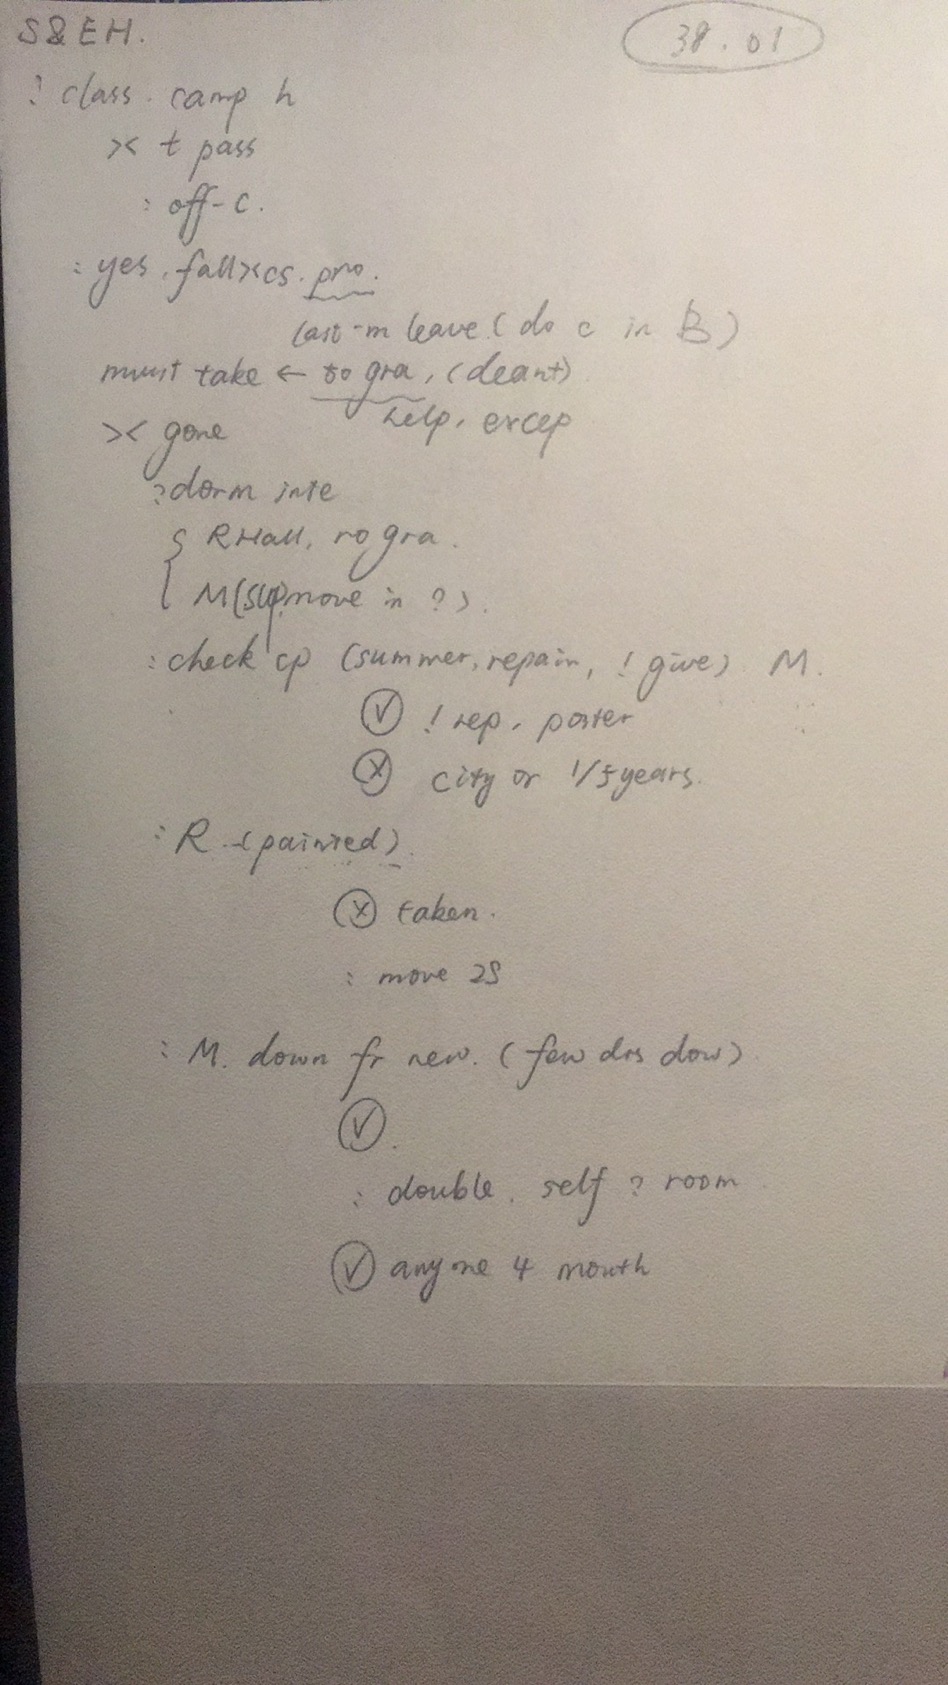 S&EH. 38.01
? class. camp h
>< t pass
: off-c.
: yes. fall >< cs. pro.
last-m leave (do c in B)
must take ← to gra, (deant)
help. excep
>< gone
? dorm inte
{ R Hall, ro gra.
M(sup move in ?).
: check cp (summer, repair, ! give) M.
✓ ! rep. poster
× city or 1/5 years.
: R (painted)
× taken.
: move 2S
: M. down fr new. (few drs dow)
✓
: double. self ? room
✓ anyone 4 mouth